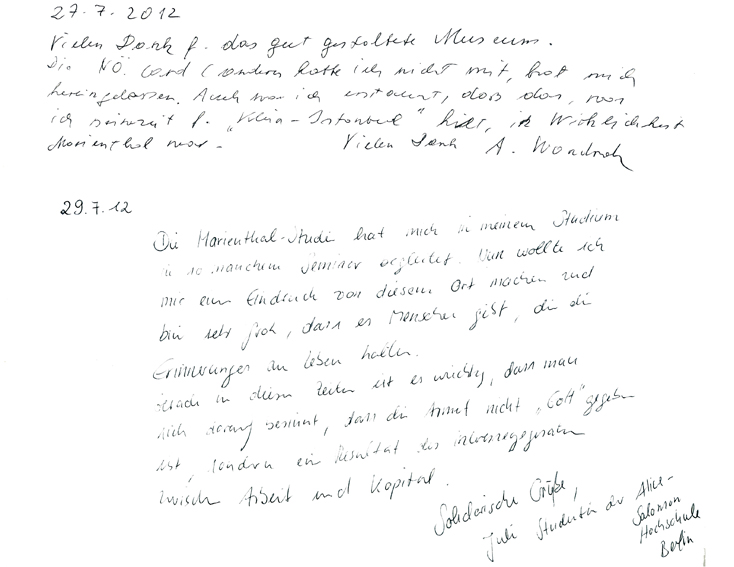 27.7.2012
Vielen Dank f. das gut gestaltete Museum.
Die NÖ. Card ( hatte ich nicht mit, hat mich
hereingelassen. Auch war ich erstaunt, dass das, was
ich seinerzeit f. "Klein-Istanbul" hielt, in Wirklichkeit
Marienthal war.- Vielen Dank A.
29.7.12
Die Marienthal-Studie hat mich in meinem Studium
in so manchem Seminar begleitet. Nun wollte ich
mir ein Eindruck von diesem Ort machen und
bin sehr froh, dass es Menschen gibt, die die
Erinnerungen am Leben halten.
Gerade in diesen Zeiten ist es wichtig, dass man
sich darauf besinnt, dass die Armut nicht "Gott"gegeben
ist, sondern ein Resultat des
zwischen Arbeit und Kapital.
Solidarische Grüße,
Juli Studentin der Alice-
Salomon
Hochschule
Berlin